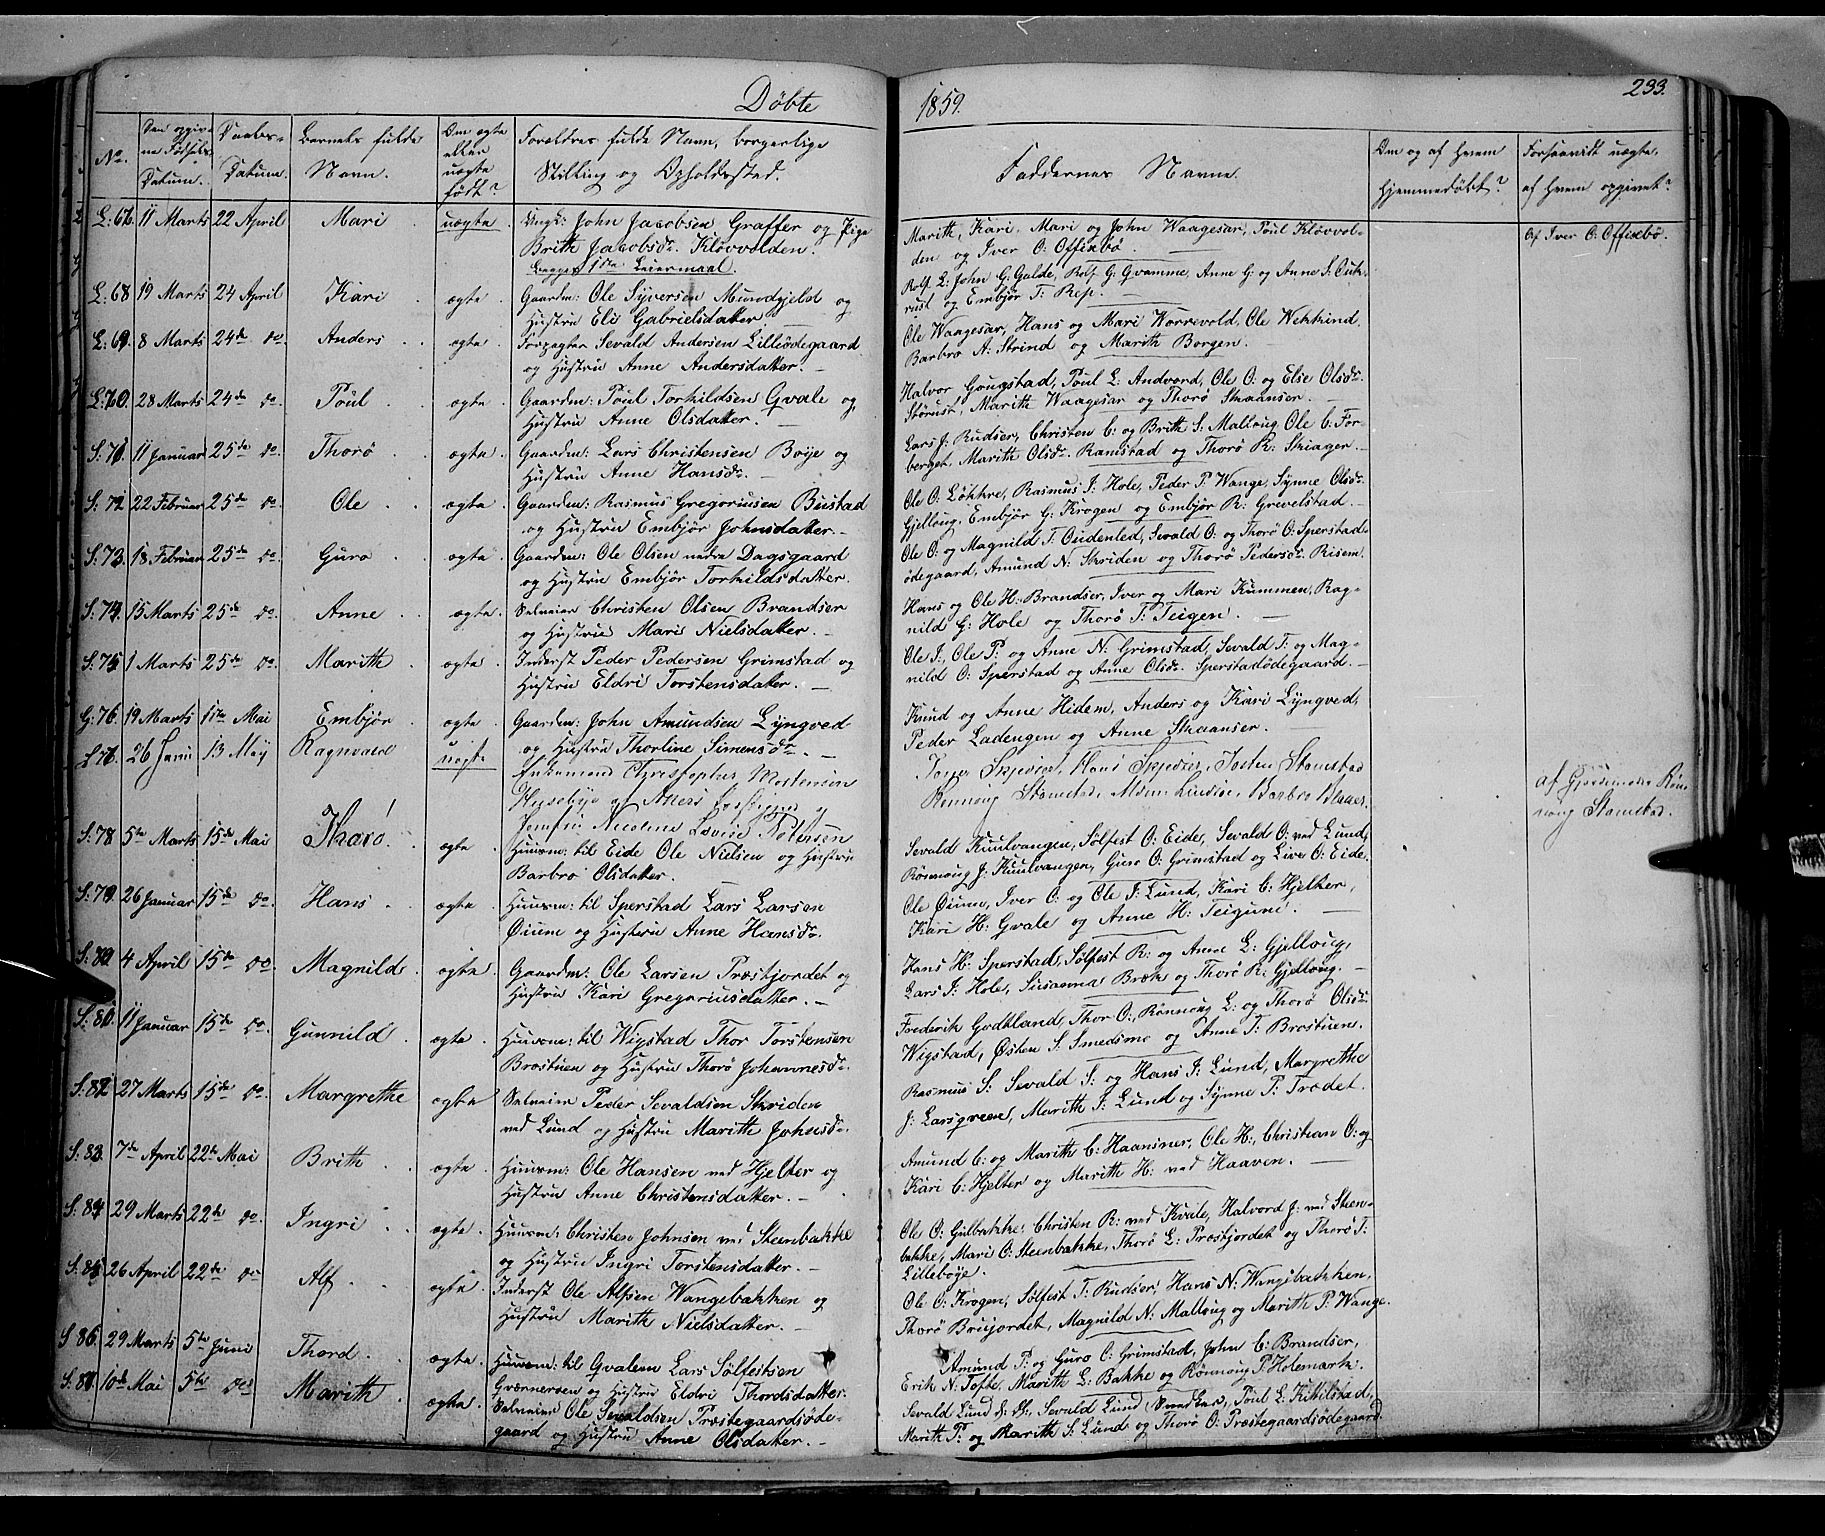 Døbte
1859.
233.
No.
Den opgivne Fødsels Datum.
Daabs-Datum.
Barnets fulde Navn.
Om ægte eller uægte født?
Forældres fulde Navn, borgerlige Stilling og Opholdssted.
Faddernes Navne.
Om og af hvem hjemmedøbt?
Forsaavidt uægte, af hvem opgivet?
L: 66. 11 Marts 22 April Mari uægte Ungk: John Jacobsen Graffer og Pige
Brith Jacobsdr. Kløvvolden.
Begges 1ste Leiermaal.
Marith, Kari, Mari og John Waagesar, Poul Kløvvol-
den og Iver O: Offixebø.
Af Iver O: Offixebø.
L: 68 19 Marts 24 April Kari ægte Gaardm: Ole Syversen Mundgjeld og
Hustru Eli Gabrielsdatter
Rolf L: John G: Galde, Rolf G: Gvamme, Anne G: og Anne S:
rust og Embjør T: Rep.
L: 69 8 Marts 24de do. Anders ægte Forpagter Sevald Andersen Lilleødegaard
og Hustru Anne Andersdatter.
Ole Waagesar, Hans og Mari Norrevold, Ole
Barbro A: Strind og Marith Borgen.
L: 70. 28 Marts 24de do. Poul ægte Gaardm: Poul Torkildsen Qvale og
Hustru Anne Olsdatter.
Halvor Gougstad, Poul L: Andvord, Ole O: og Else Olsdr.
Storust, Marith Waagesar og Thorø Skaanser.
S: 71. 11 Januar 25de do. Thorø ægte Gaardm: Lars Christensen Bøje og
Hustru Anne Hansdr.
Lars J: Rudser, Christen C: og Brith S: Malloug, Ole C: For-
berget, Marith Olsdr. Ramstad og Thorø R: Skiager.
S: 72 22 Februar 25de do. Ole ægte Gaardm: Rasmus Gregoriusen Bustad
og Hustru Embjør Johnsdatter.
Ole O: Løkkre, Rasmus I: Hole, Peder P. Wange, Synne Olsdr.
Gjelloug, Embjør G: Krogen og Embjør R: Grevelstad.
S: 73. 18 Februar 25de do. Guro ægte Gaardm: Ole Olsen nedre Dagsgaard
og Hustru Embjør Torkildsdatter.
Ole O: og Magnild T. Oudenled, Sevald O: og Thorø O: Sperstad-
ødegaard, Amund N: Skriden og Thorø Pedersdr. Risem
S: 74. 15 Marts 25de do. Anne ægte Selveier Christen Olsen Brandser
og Hustru Mari Nielsdatter.
Hans og Ole H: Brandser, Iver og Mari Kummen, Rag-
nild G: Hole og Thorø T: Teigen.
S: 75 1 Marts 25de do. Marith ægte Inderst Peder Pedersen Grimstad og
Hustru Eldri Torstensdatter.
Ole I:, Ole P: og Anne N: Grimstad, Sevald T: og Mag-
nild O: Sperstad og Anne Olsdr. Sperstadødegaard.
G: 76. 19 Marts 1ste Mai Embjør ægte Gaardm: John Amundsen Lyngved
og Hustru Thorline Simensdr.
Knud og Anne Hidem, Anders og Kari Lyngved,
Peder Ladengen og Anne Skaanser.
26 13 Maij Ragnvald uægte Enkemand Christopher Mortensen
Huseby og
Nicoline Lovise Petersen
Skjedvier, Hans Skjedvier, Josten Stamstad
Rønnoug Stamstad, Barbro Blaaer.
af Gjordemoder Røn-
noug Stamstad.
S: 78 5te Marts 15de Mai Tharo. ægte Huusm: til Eide Ole Nielsen og Hustru
Barbro Olsdatter.
Sevald Kuulvangen, Sølfest O: Eide, Sevald O: ved Lund,
Rønnoug J: Kuulvangen, Guro O: Grimstad og Live O: Eide.
S: 79 26 Januar 15de do. Hans ægte Huusm: til Sperstad Lars Larsen
Øium og Hustru Anne Hansdr.
Ole Øium, Iver O: og Ole I: Lund, Kari C: Hjelter,
Kari H: Qvale og Anne H: Teigum.
S: 80 4 April 15de do. Magnild ægte Gaardm: Ole Larsen Præstjordet og
Hustru Kari Gregoriusdatter.
Hans H: Sperstad, Sølfest R: og Anne L: Gjelloug,
Lars I: Hole, Susanna Bræk og Thorø R: Gjelloug.
S: 81. 11 Januar 15de do. Gunnild ægte Huusm: til Wigstad Thor Torstensen
Brostuen og Hustru Thorø Johannesdr.
Frederik Godtland, Thor O:, Rønnoug L: og Thorø Olsdr.
Wigstad, Østen S. Smedsmo og Anne T: Brostuen.
S: 82 27 Marts 15de do. Margrethe ægte Selveier Peder Sevaldsen Skriden
ved Lund og Hustru Marith Johnsdr.
Rasmus S: Sevald S: og Hans I: Lund, Margrethe
J: Larsgreen, Marith I: Lund og Synne P: Trædet.
S: 83. 7de April 22de Mai Brith ægte Huusm: Ole Hansen ved Hjelter og
Hustru Anne Christensdatter.
Amund C: og Marith C: Haansnes, Ole H:, Christian O: og
Kari C: Hjelter og Marith H: ved Haaven.
S: 84 29 Marts 22de do. Ingri ægte Huusm: Christen Johnsen ved Steenbakke
og Hustru Ingri Torstensdatter.
Ole O: Gulbakke, Christen R: ved Kvale, Halvord J: ved Steen-
bakke, Mari O: Steenbakke, Thorø L: Præstjordet og Thorø T:
Lillebøye.
S: 85 26 April 22de do Alf ægte Inderst Ole Alfsen Wangsbakken og
Hustru Marith Nielsdatter.
Ole O: Krogen, Sølfest T: Rudser, Hans N: Wangsbakken,
Thorø Brujordet, Magnild N: Malloug og Marith P: Wange.
S: 86. 29 Marts 5te Juni Thord ægte Huusm: til Qvalem Lars Sølfestsen
Qværneroen og Hustru Eldri Thordsdatter.
Amund P: og Guro C: Grimstad, John C: Brandser,
Erik N: Tofte, Marith L: Bakke og Rønnoug P. Holemark.
S: 87. 10de Mai 5te do Marith ægte Selveier Ole Sevaldsen Præstegaardsøde-
gaard og Hustru Anne Olsdatter.
Sevald Lund Sevald Lund Poul L: Kittilstad,
Marith P: og Marith S: Lund og Thorø O: Præstegaardsødegaard.